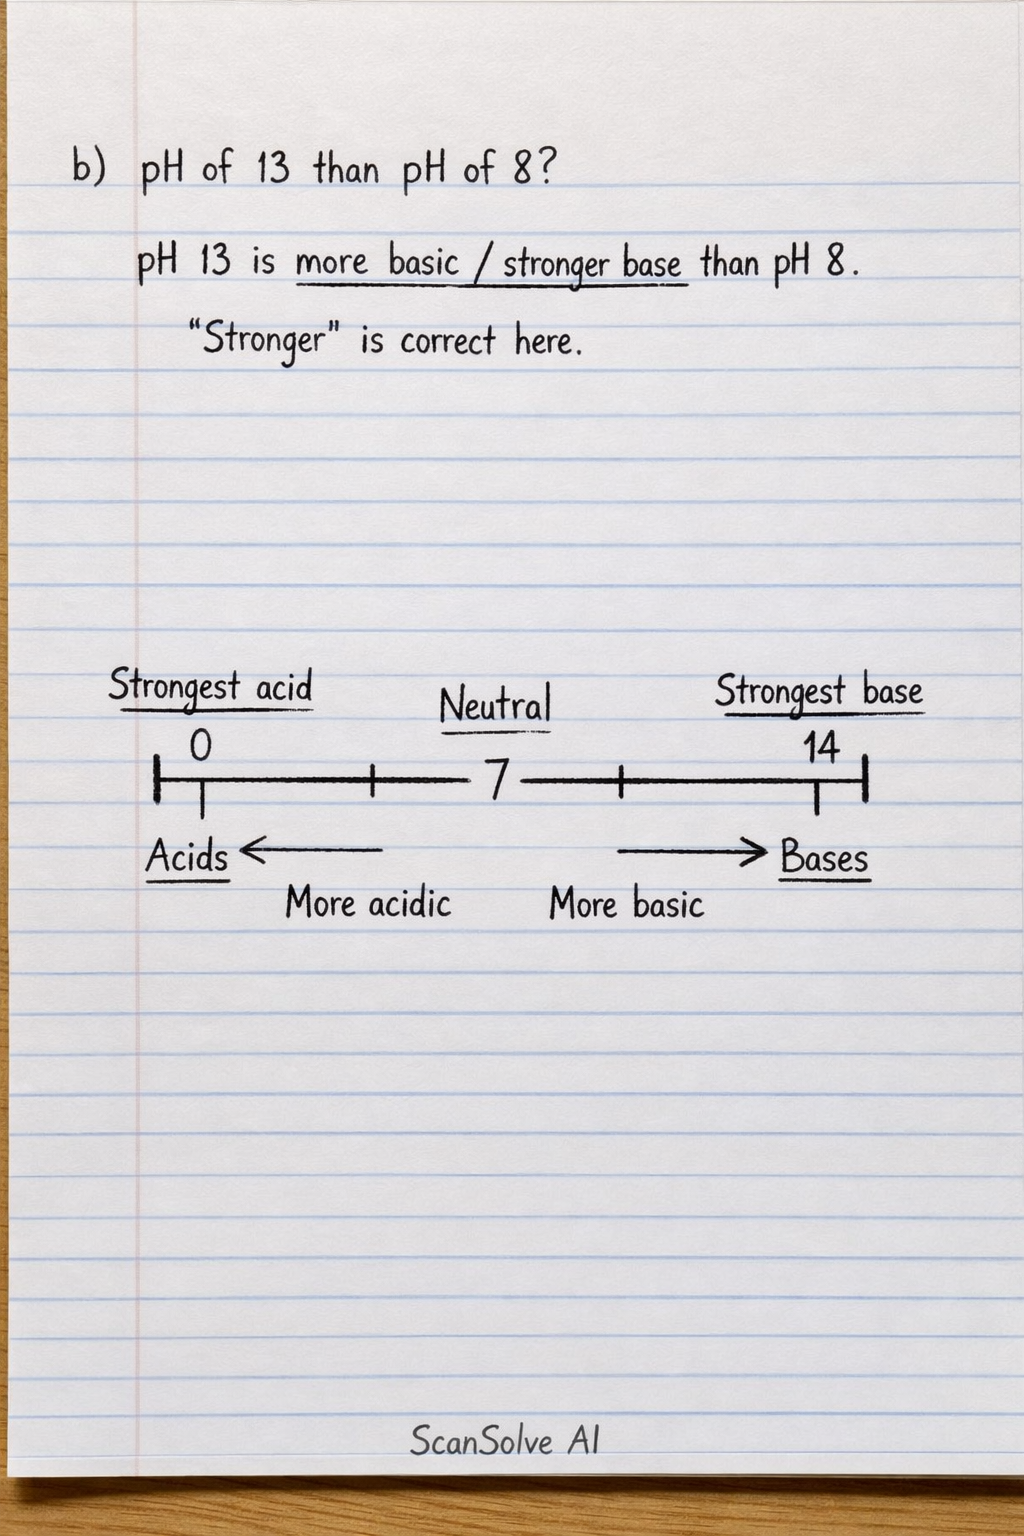 b) pH of 13 than pH of 8?
pH 13 is more basic / stronger base than pH 8.
"Stronger" is correct here.
Strongest acid
Neutral
Strongest base
0
7
14
Acids
Bases
More acidic
More basic
ScanSolve AI